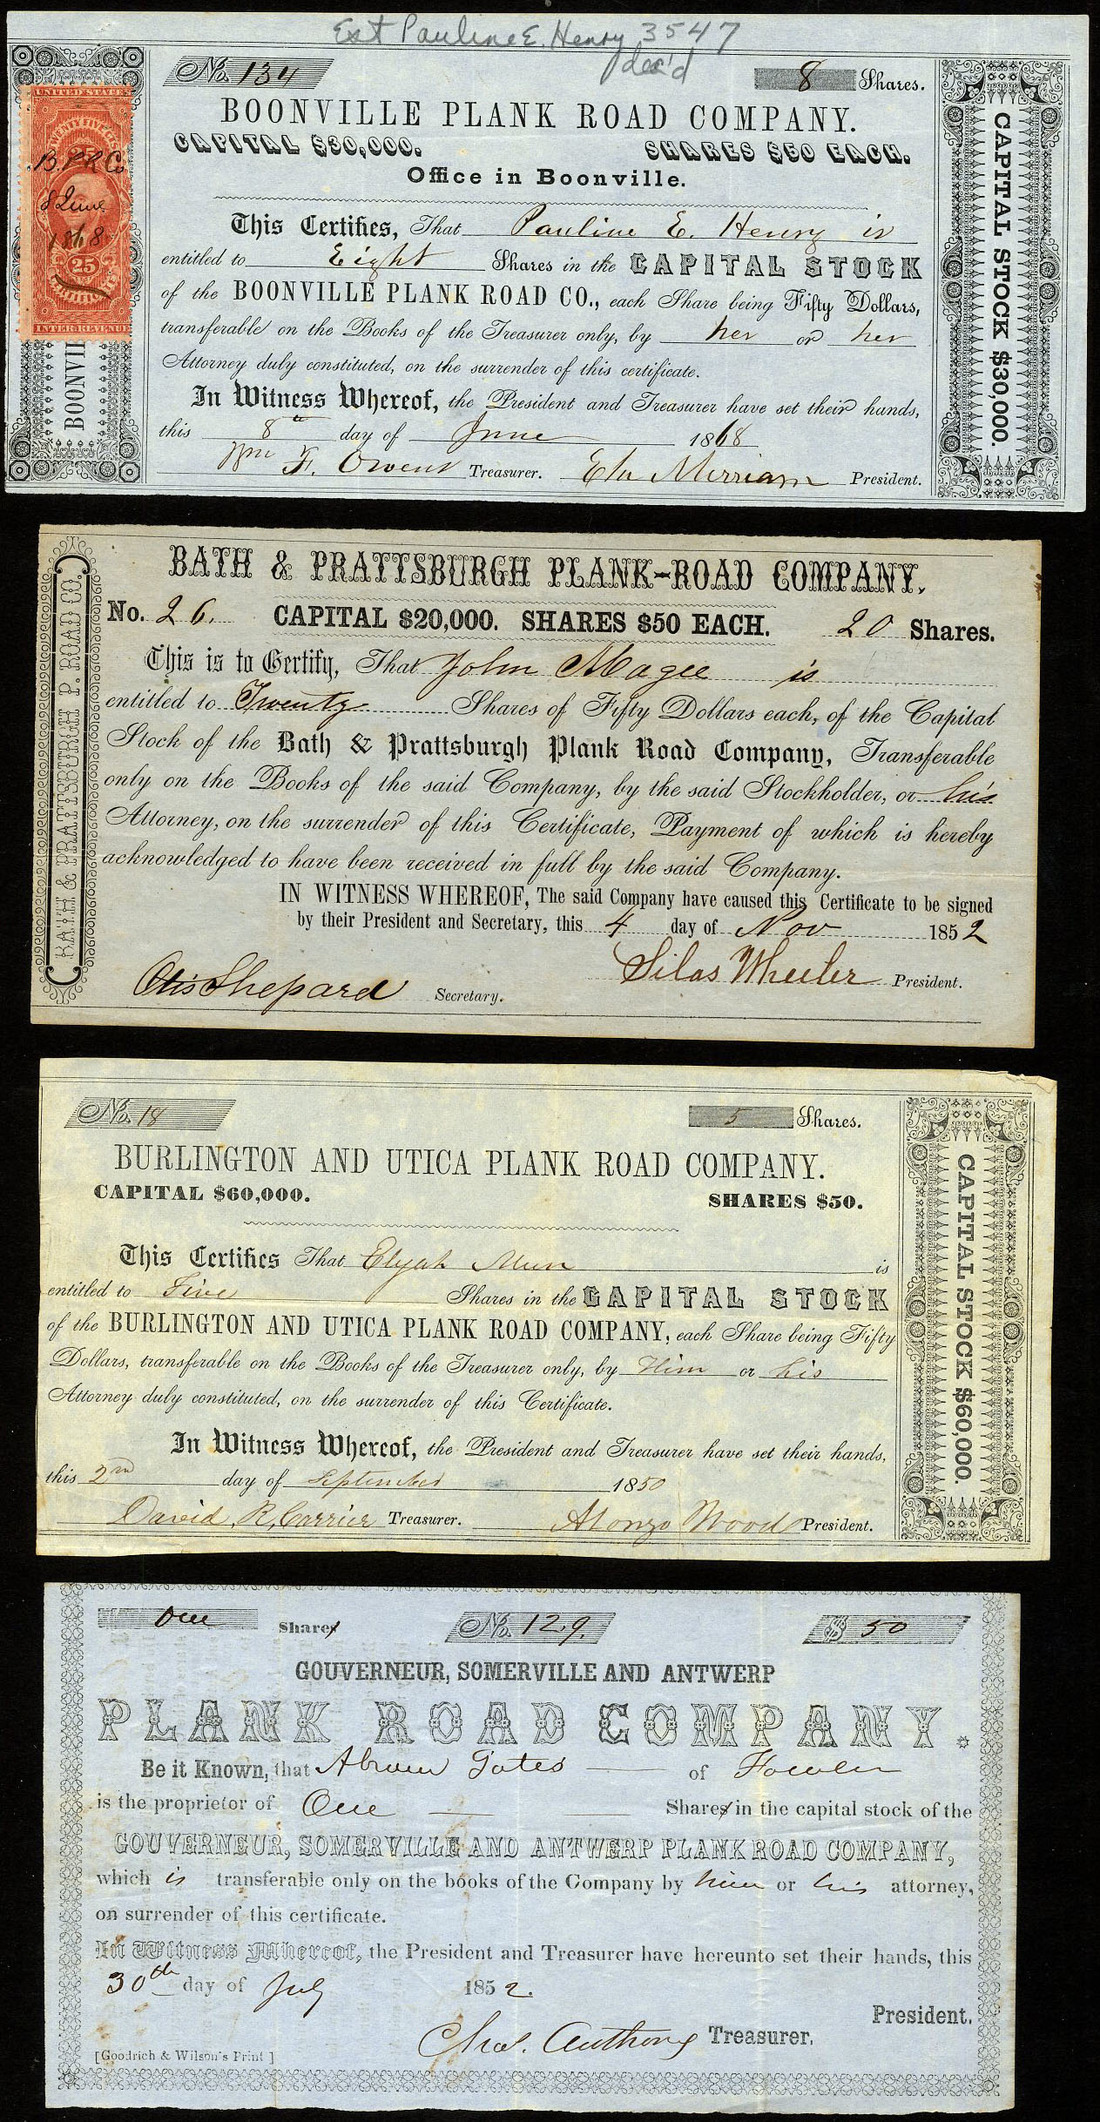 Est Pauline E. Henry 3547
dec'd
No. 134
8 Shares.
BOONVILLE PLANK ROAD COMPANY.
CAPITAL $30,000. SHARES $50 EACH.
Office in Boonville.
This Certifies, That Pauline E. Henry is
entitled to Eight Shares in the CAPITAL STOCK
of the BOONVILLE PLANK ROAD CO., each Share being Fifty Dollars,
transferable on the Books of the Treasurer only, by her or her
Attorney duly constituted, on the surrender of this certificate.
In Witness Whereof, the President and Treasurer have set their hands,
this 8th day of June 1868
Wm F. Owens Treasurer. Ela Merriam President.
CAPITAL STOCK $30,000.
UNITED STATES
TWENTY FIVE
25
B.P.R Co
8 June
1868
25
INTER. REVENUE
BOONVIL
BATH & PRATTSBURGH PLANK-ROAD COMPANY.
No. 26. CAPITAL $20,000. SHARES $50 EACH. 20 Shares.
This is to Certify, That John Magee is
entitled to Twenty Shares of Fifty Dollars each, of the Capital
Stock of the Bath & Prattsburgh Plank Road Company, Transferable
only on the Books of the said Company, by the said Stockholder, or his
Attorney, on the surrender of this Certificate, Payment of which is hereby
acknowledged to have been received in full by the said Company.
IN WITNESS WHEREOF, The said Company have caused this Certificate to be signed
by their President and Secretary, this 4 day of Nov 1852
Otis Shepard Secretary. Silas Wheeler President.
BATH & PRATTSBURGH P. ROAD CO.
No. 18
5 Shares.
BURLINGTON AND UTICA PLANK ROAD COMPANY.
CAPITAL $60,000. SHARES $50.
This Certifies That Elijah Munn is
entitled to Five Shares in the CAPITAL STOCK
of the BURLINGTON AND UTICA PLANK ROAD COMPANY, each Share being Fifty
Dollars, transferable on the Books of the Treasurer only, by Him or his
Attorney duly constituted, on the surrender of this Certificate.
In Witness Whereof, the President and Treasurer have set their hands,
this 2nd day of September 1850
David R. Carrier Treasurer. Alonzo Wood President.
CAPITAL STOCK $60,000.
One Shares No. 129. $ 50
GOUVERNEUR, SOMERVILLE AND ANTWERP
PLANK ROAD COMPANY.
Be it Known, that Abram Yates of Fowler
is the proprietor of One Shares in the capital stock of the
GOUVERNEUR, SOMERVILLE AND ANTWERP PLANK ROAD COMPANY,
which is transferable only on the books of the Company by him or his attorney,
on surrender of this certificate.
In Witness Whereof, the President and Treasurer have hereunto set their hands, this
30th day of July 1852.
President.
Chas. Anthony Treasurer.
[Goodrich & Wilson's Print]